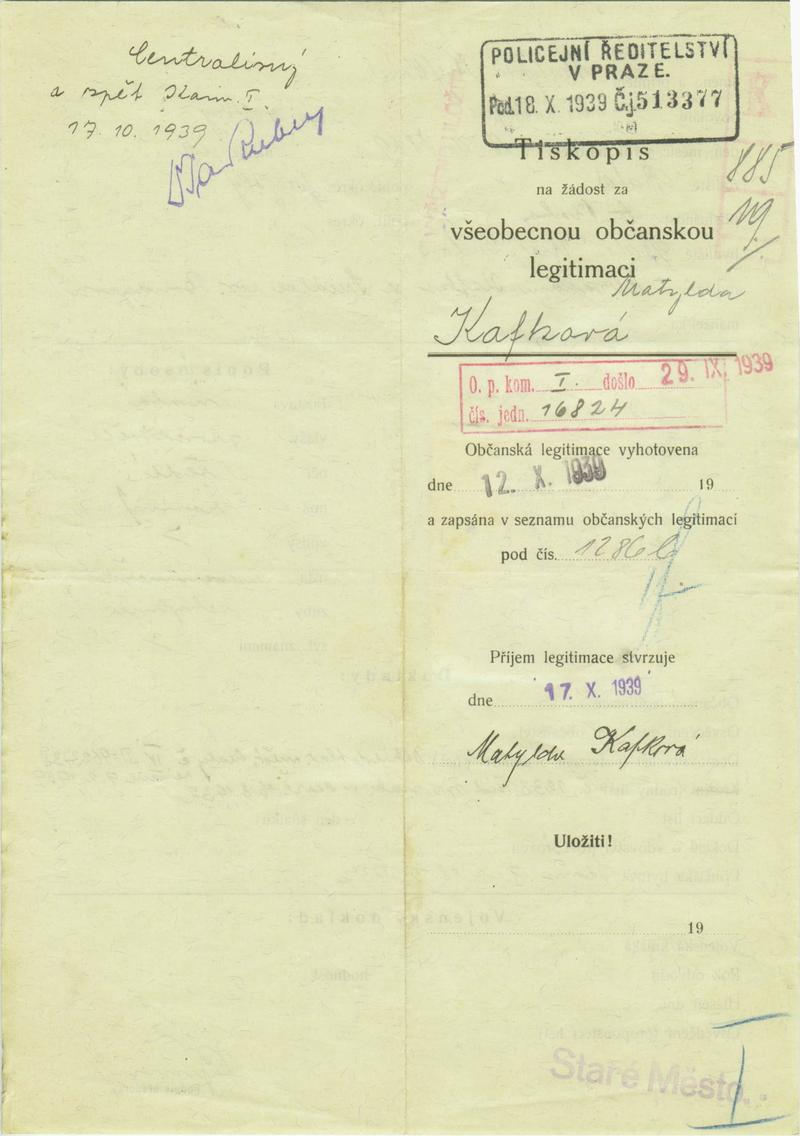 Centralisný
a zpět Kom. I.
17. 10. 1939
POLICEJNÍ ŘEDITELSTVÍ
V PRAZE.
Pod. 18. X. 1939 Čj. 513377
Tiskopis
885
na žádost za
19
všeobecnou občanskou
legitimaci
Matylda
Kafková
O. p. kom. I. došlo 29. IX. 1939
čís. jedn. 16824
Občanská legitimace vyhotovena
dne 12. X. 1939 19
a zapsána v seznamu občanských legitimací
pod čís. 1286
Příjem legitimace stvrzuje
dne 17. X. 1939
Matylda Kafková
Uložiti!
19
Staré Město.
I